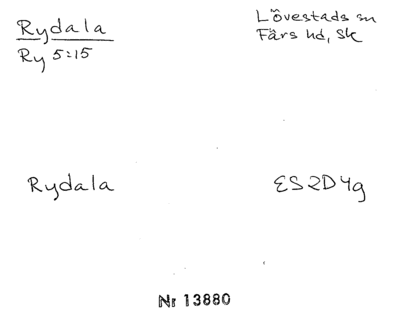 Rydala
Ry 5:15
Lövestads sn
Färs hd, Sk
Rydala
ES2D4g
Nr 13880